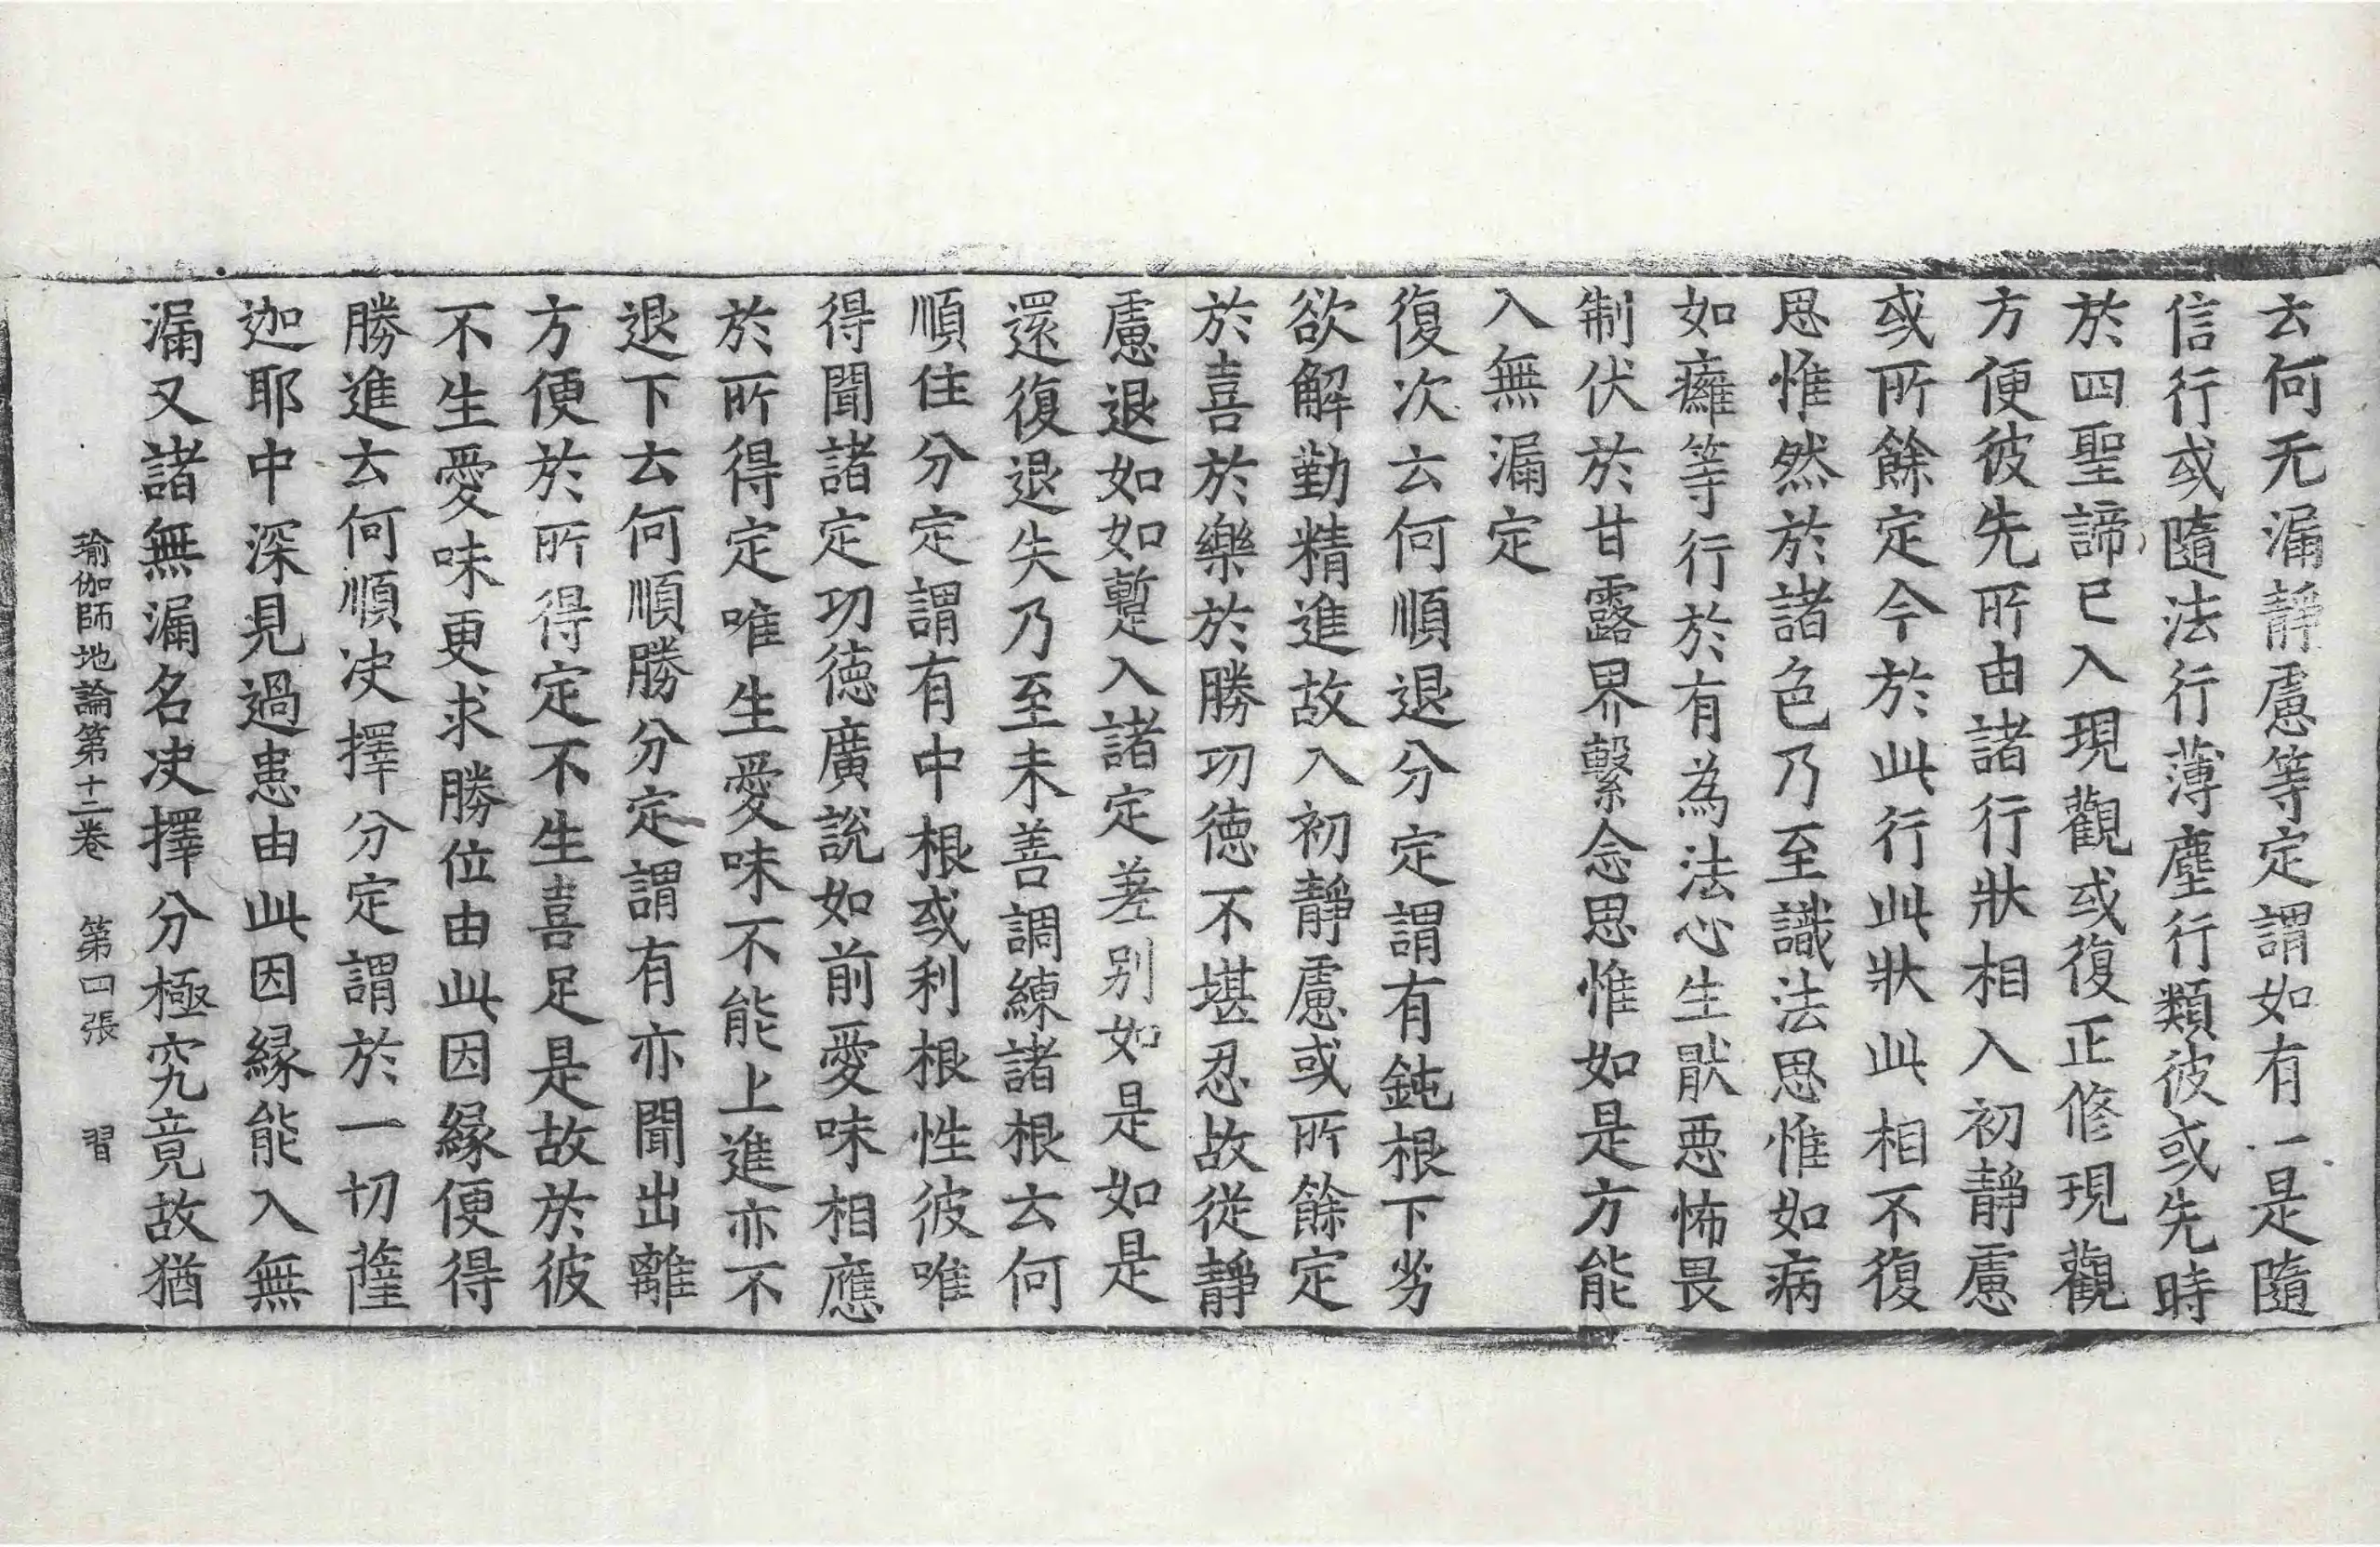 云何无漏靜慮等定謂如有一是隨
信行或隨法行薄塵行類彼或先時
於四聖諦已入現觀或復正修現觀
方便彼先所由諸行狀相入初靜慮
或所餘定今於此行此狀此相不復
思惟然於諸色乃至識法思惟如病
如癰等行於有為法心生猒惡怖畏
制伏於甘露界繫念思惟如是方能
入無漏定
復次云何順退分定謂有鈍根下劣
欲解勤精進故入初靜慮或所餘定
於喜於樂於勝功德不堪忍故從靜
慮退如如暫入諸定差別如是如是
還復退失乃至未善調練諸根云何
順住分定謂有中根或利根性彼唯
得聞諸定功德廣說如前愛味相應
於所得定唯生愛味不能上進亦不
退下云何順勝分定謂有亦聞出離
方便於所得定不生喜足是故於彼
不生愛味更求勝位由此因緣便得
勝進云何順决擇分定謂於一切薩
迦耶中深見過患由此因緣能入無
漏又諸無漏名决擇分極究竟故猶
瑜伽師地論第十二卷 第四張 習